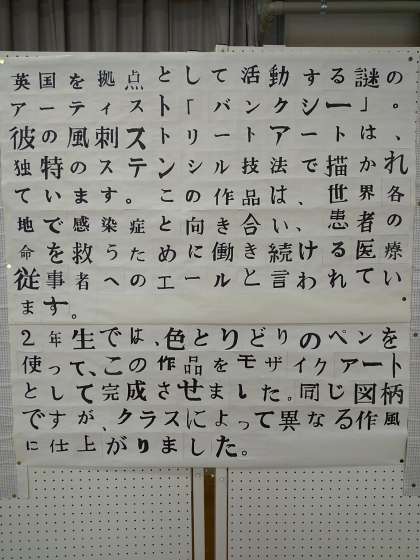 英国を拠点として活動する謎の
アーティスト「バンクシー」。
彼の風刺ストリートアートは、
独特のステンシル技法で描かれ
ています。この作品は、世界各
地で感染症と向き合い、患者の
命を救うために働き続ける医療
従事者へのエールと言われてい
ます。
2年生では、色とりどりのペンを
使って、この作品をモザイクアート
として完成させました。同じ図柄
ですが、クラスによって異なる作風
に仕上がりました。